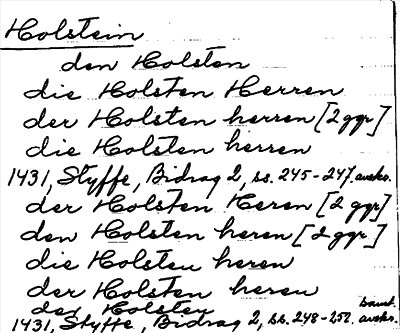 Holstein
den Holsten
die Holsten Herren
der Holsten herren [2 ggr]
die Holsten herren
1431, Styffe, Bidrag 2, ss. 245-247. avskr.
der Holsten Heren [2 ggr]
den Holsten heren [2 ggr]
die Holsten heren
der Holsten heren
der Holster
1431, Styffe, Bidrag 2, ss. 248-252, avskr.